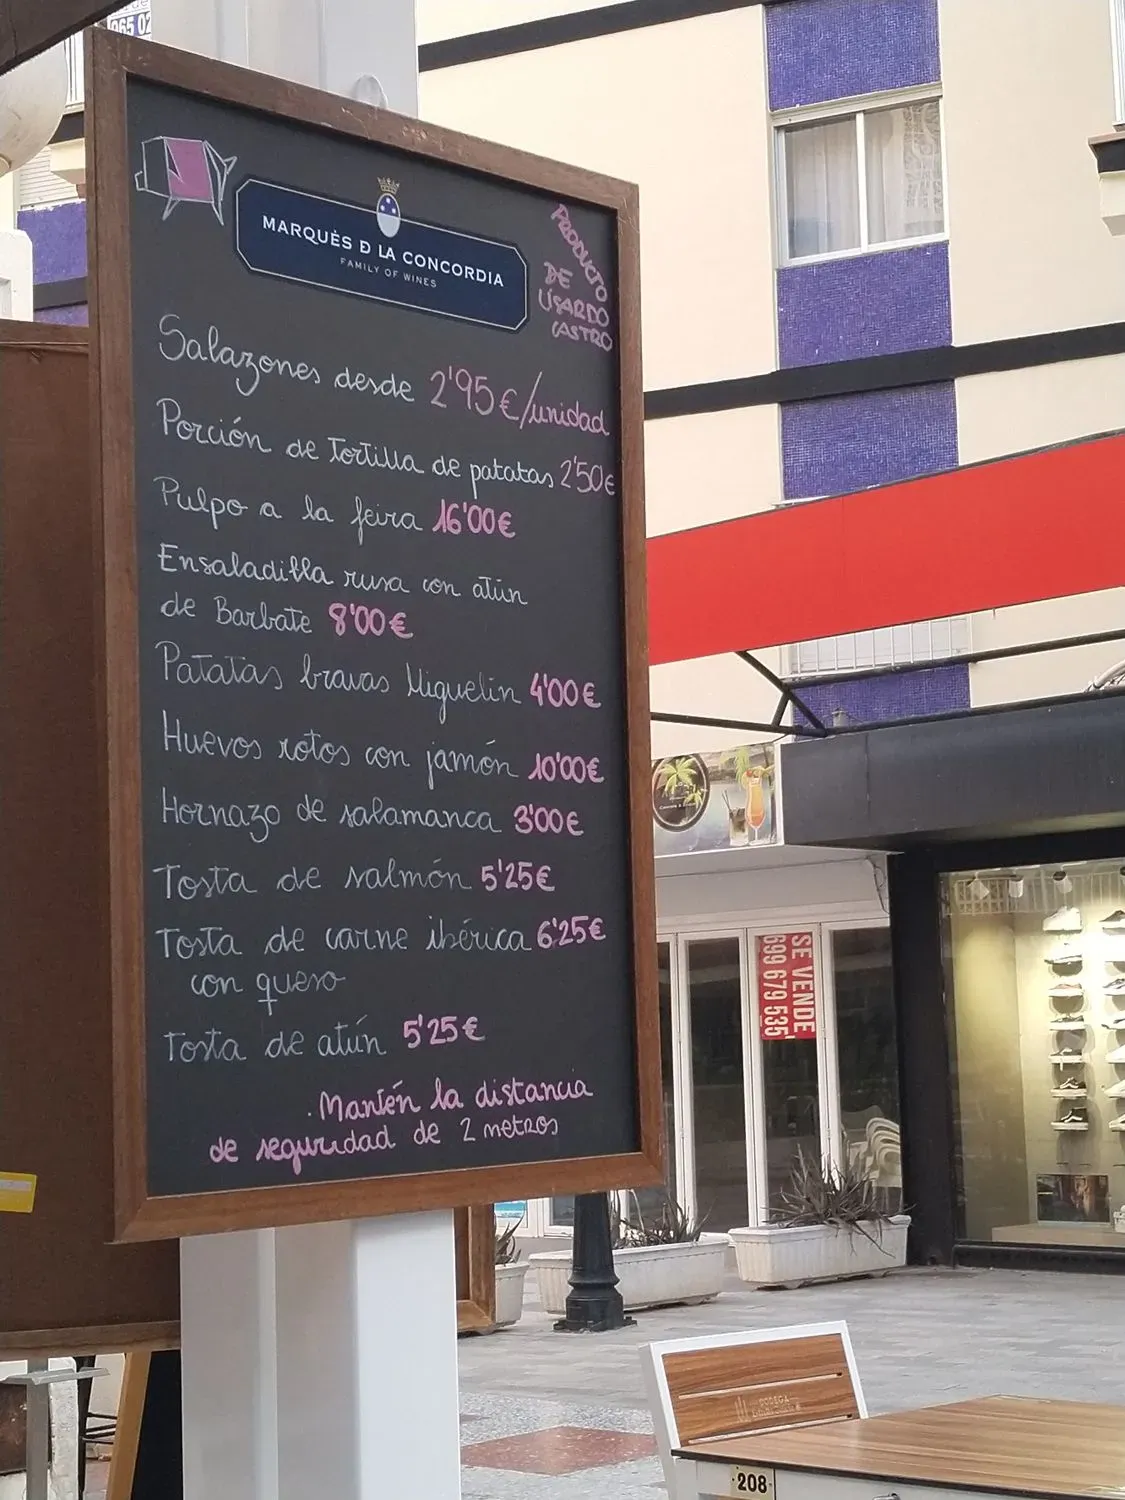 965 02
MARQUÉS D LA CONCORDIA
FAMILY OF WINES
PRODUCTO
DE
LISARDO
CASTRO
Salazones desde 2'95€/unidad
Porción de Tortilla de patatas 2'50€
Pulpo a la feira 16'00€
Ensaladilla rusa con atún
de Barbate 8'00€
Patatas bravas Miguelín 4'00€
Huevos rotos con jamón 10'00€
Hornazo de salamanca 3'00€
Tosta de salmón 5'25€
Tosta de carne ibérica 6'25€
con queso
Tosta de atún 5'25€
Mantén la distancia
de seguridad de 2 metros
SE VENDE
699 679 535
BODEGA
208